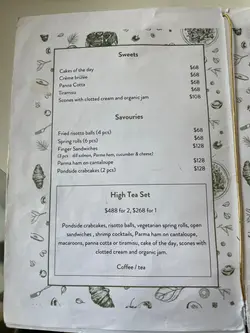 Sweets
Cakes of the day $68
Crème brûlée $68
Panna Cotta $68
Tiramisu $68
Scones with clotted cream and organic jam $108
Savouries
Fried risotto balls (4 pcs) $68
Spring rolls (6 pcs) $68
Finger Sandwiches $128
Parma ham on cantaloupe $128
Pondside crabcakes (2 pcs) $128
High Tea Set
$488 for 2, $268 for 1
Pondside crabcakes, risotto balls, vegetarian spring rolls, open
sandwiches, shrimp cocktails, Parma ham on cantaloupe,
macaroons, panna cotta or tiramisu, cake of the day, scones with
clotted cream and organic jam.
Coffee / tea